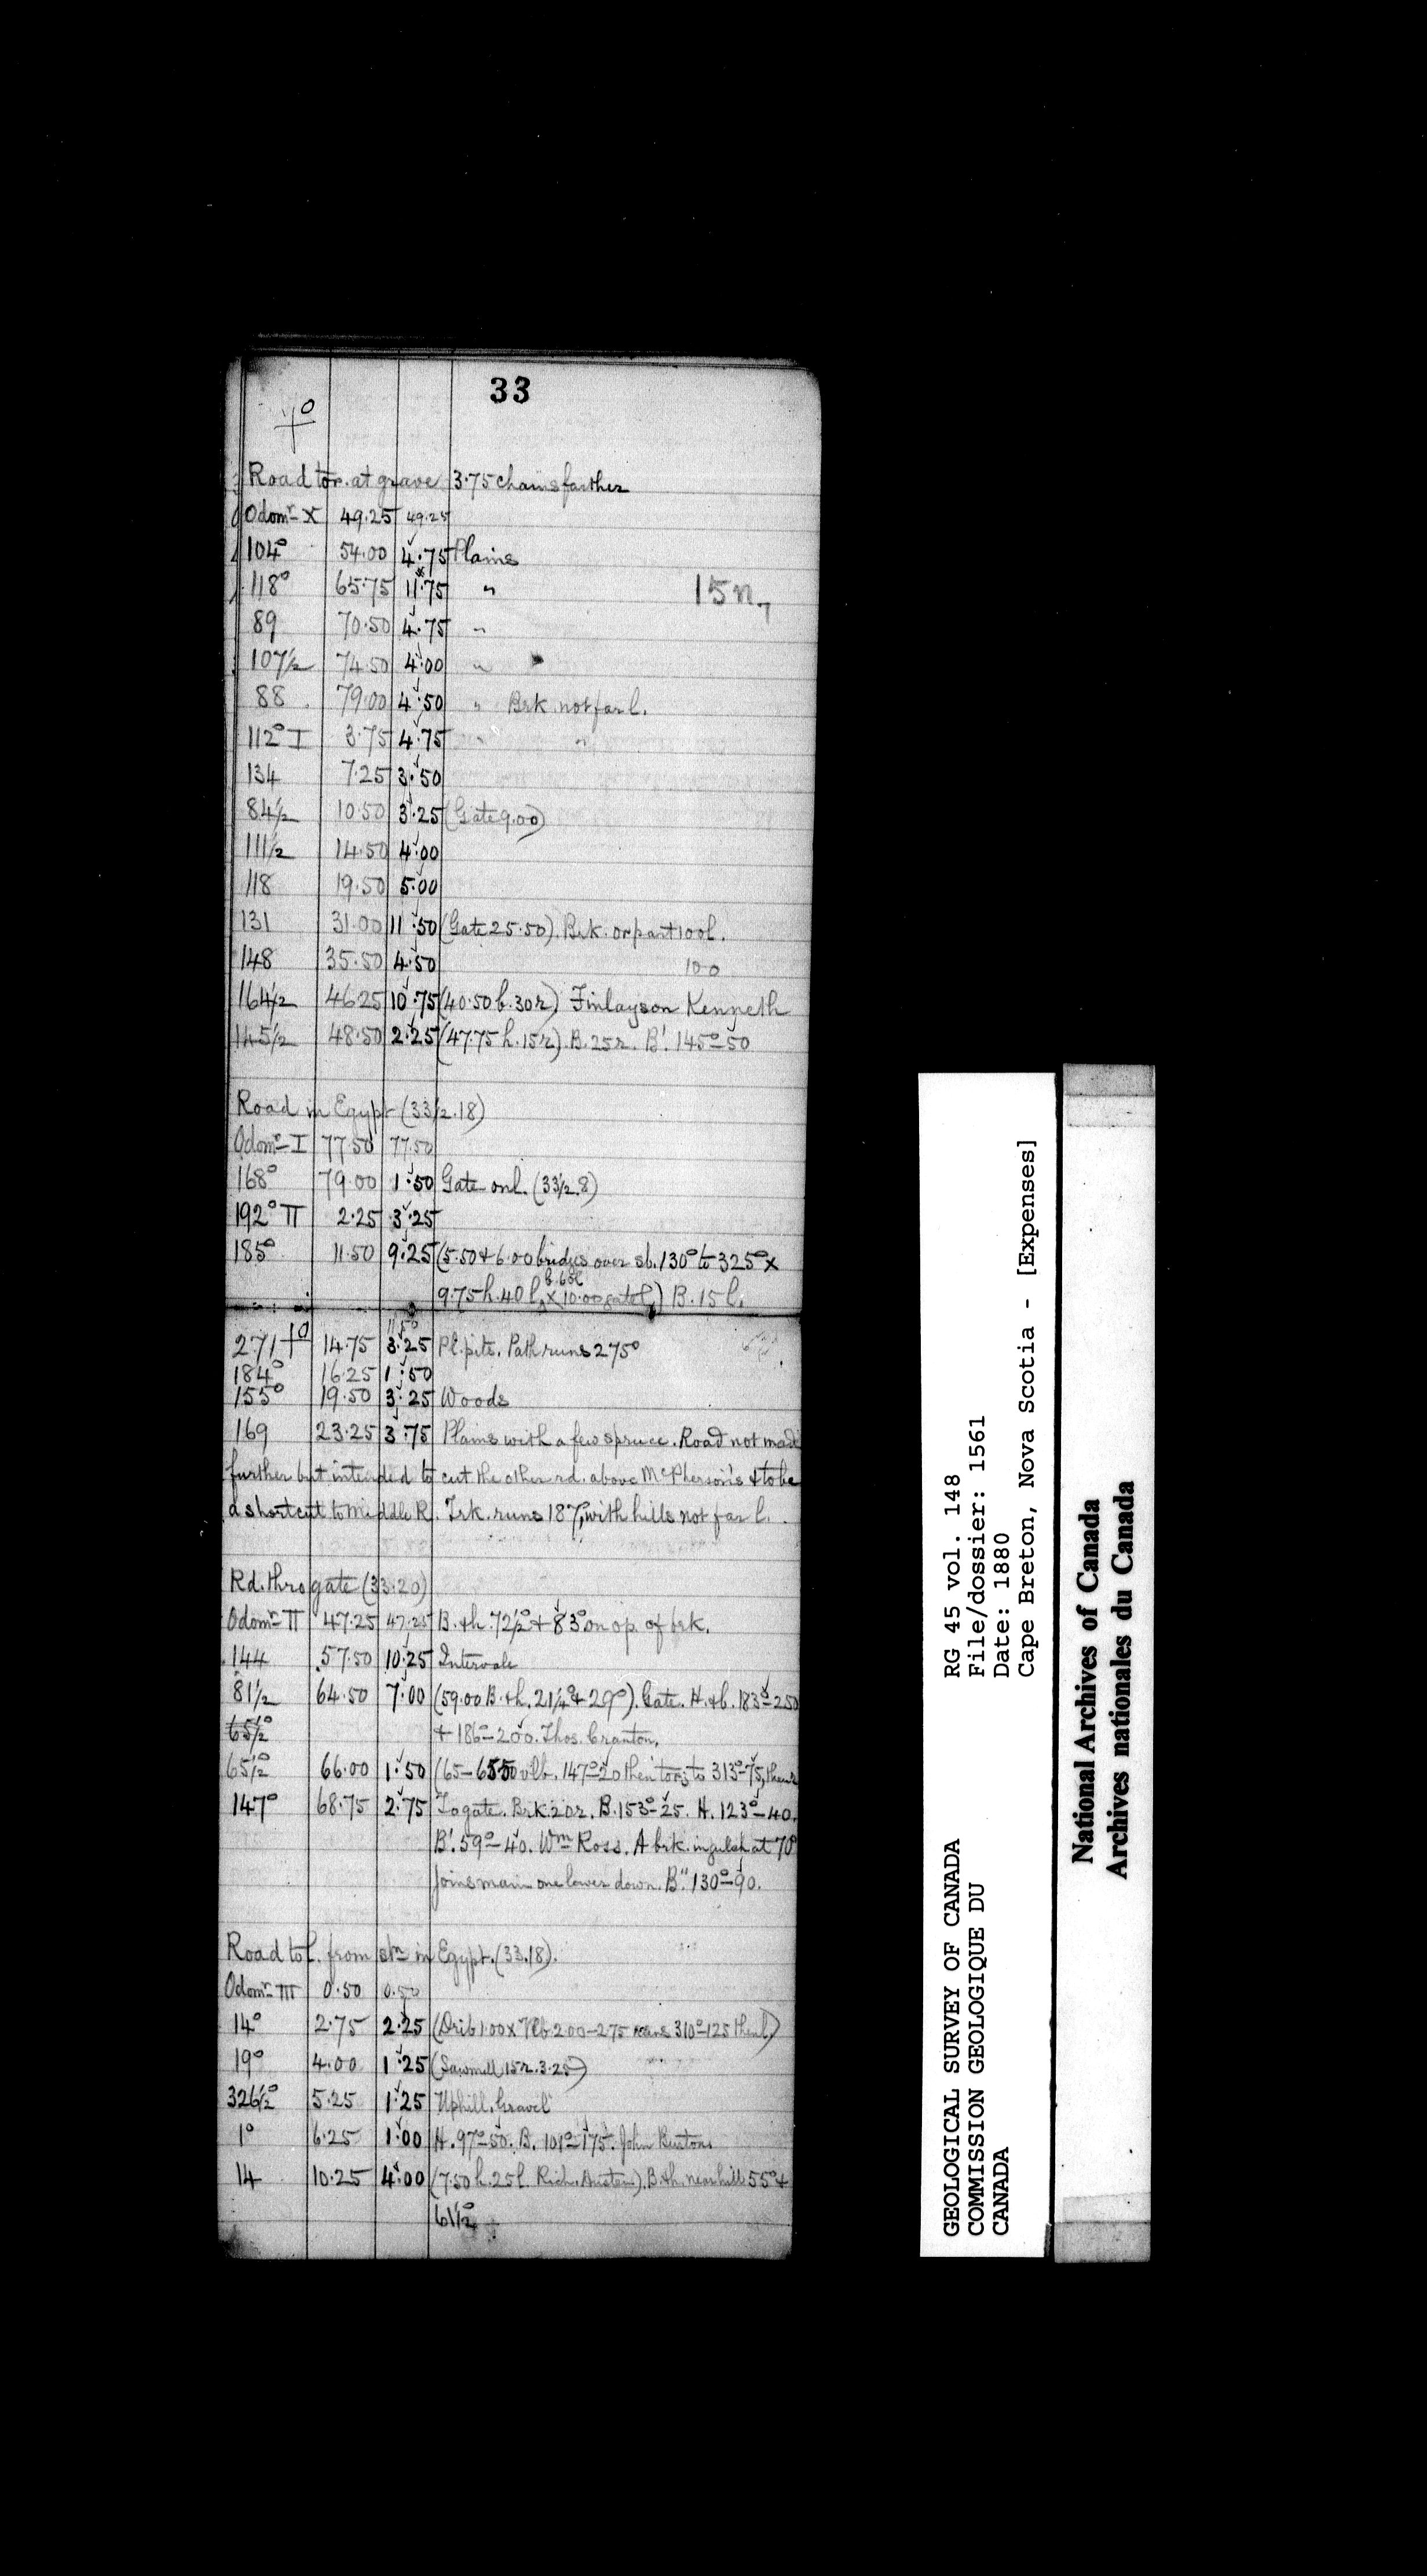 33
Road to r. at grave 3.75 chains farther
Odomr X 49.25 49.25
104° 54.00 4.75 Plains
118° 65.75 11.75 "
15n7
89 70.50 4.75 "
107½ 74.50 4.00 "
88 79.00 4.50 " Brk not far l.
112° I 3.75 4.75 " "
134 7.25 3.50
84½ 10.50 3.25 (Gate 9.00)
111½ 14.50 4.00
118 19.50 5.00
131 31.00 11.50 (Gate 25.50). Brk. or part 100l.
148 35.50 4.50 100
164½ 46.25 10.75 (40.50 b. 30r) Finlayson Kenneth
145½ 48.50 2.25 (47.75 h. 15r) B. 25r. B'. 145°-50
Road in Egypt (33½.18)
Odomr I 77.50 77.50
168° 79.00 1.50 Gate on l. (33½.8)
192° II 2.25 3.25
185° 11.50 9.25 (5.50 + 6.00 bridges over sb. 130° to 325° x
9.75 h. 40 l, b. 60l x 10.00 gate l.) B. 15 l.
271 14.75 3.25 Pl. pits. Path runs 275°
184° 16.25 1.50
155° 19.50 3.25 Woods
169 23.25 3.75 Plains with a few spruce. Road not made
further but intended to cut the other rd. above McPherson's & to be
a shortcut to Middle R. Trk. runs 187°, with hills not far l.
Rd. thro gate (33.20)
Odomr II 47.25 47.25 B. & h. 72½° + 83° on op. of brk.
144 57.50 10.25 Intervale
81½ 64.50 7.00 (59.00 B. & h. 21¼° + 29°). Gate. H. & b. 183°-250
65½° + 186°-200. Thos. Cranton.
65½° 66.00 1.50 (65-65.50 vlb. 147°-20 then to r. to 313°-75, then
147° 68.75 2.75 To gate. Brk. 20r. B. 153°-25. H. 123°-40.
B'. 59°-40. Wm Ross. A brk. in gulch at 70°
joins main one lower down. B". 130°-90.
Road to l. from stn in Egypt. (33.18).
Odomr III 0.50 0.50
14° 2.75 2.25 (Dri b 1.00 x 7lb 2.00-2.75 runs 310°-125 then l.)
19° 4.00 1.25 (Sawmill 15r. 3.25)
326½° 5.25 1.25 Uphill. Gravel
1° 6.25 1.00 H. 97°-50. B. 101°-175. John
14 10.25 4.00 (7.50 h. 25l. Rich. Austen). B. & h. near hill 55° +
61½°
GEOLOGICAL SURVEY OF CANADA
COMMISSION GEOLOGIQUE DU
CANADA
RG 45 vol. 148
File/dossier: 1561
Date: 1880
Cape Breton, Nova Scotia - [Expenses]
National Archives of Canada
Archives nationales du Canada